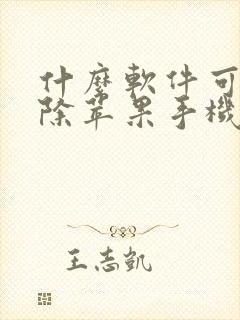 什麼軟件可
除苹果手機
王志凯